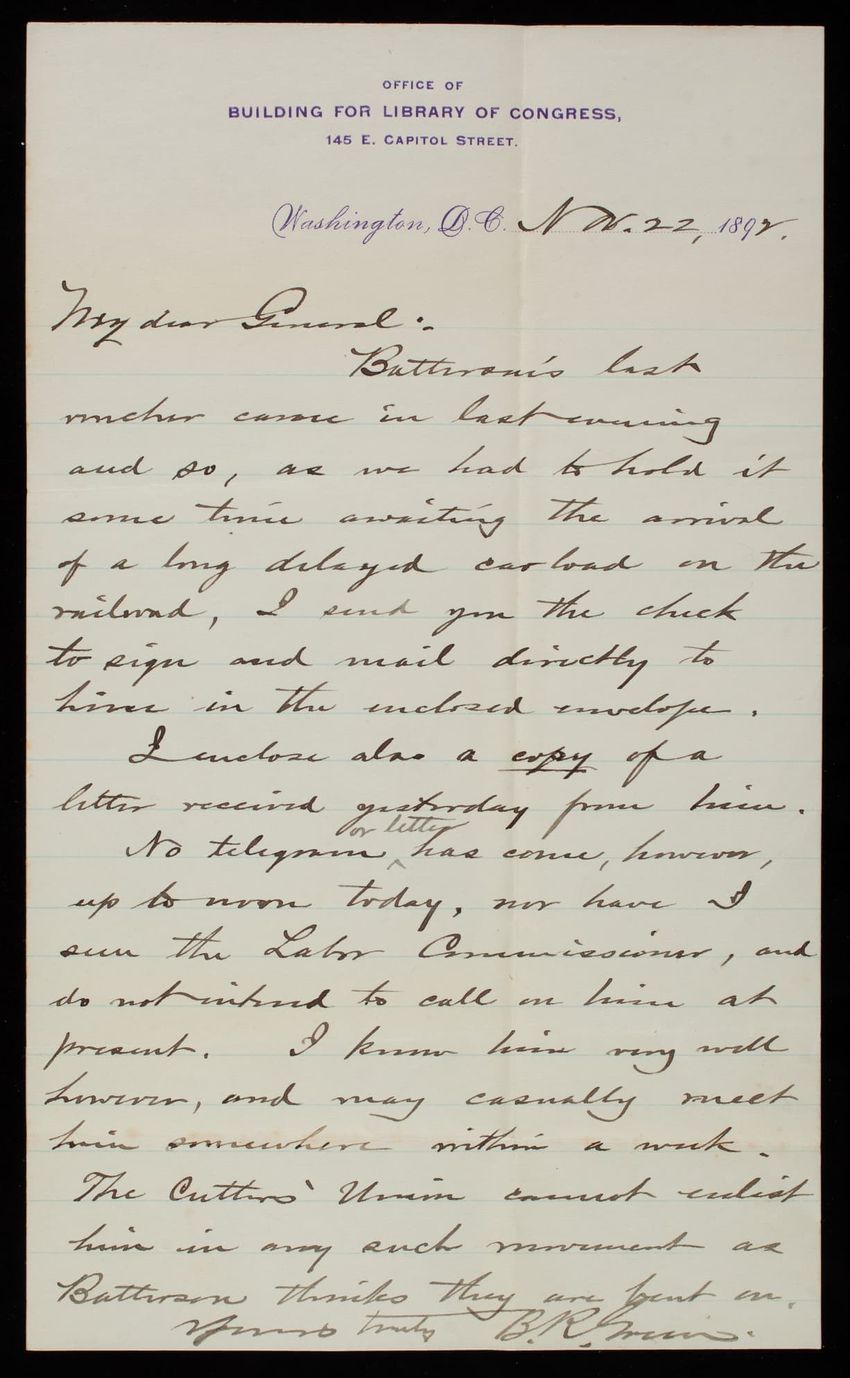 OFFICE OF
BUILDING FOR LIBRARY OF CONGRESS,
145 E. CAPITOL STREET.
Washington, D.C. Nov. 22, 1892.
My dear General:-
Batterson's last
voucher came in last evening
and so, as we had to hold it
some time awaiting the arrival
of a long delayed carload on the
railroad, I send you the check
to sign and mail directly to
him in the enclosed envelope.
I enclose also a copy of a
letter received yesterday from him.
or letter
No telegram ^ has come, however,
up to noon today, nor have I
seen the Labor Commissioner, and
do not intend to call on him at
present. I know him very well
however, and may casually meet
him somewhere within a week.
The Cutters' Union cannot enlist
him in any such movement as
Batterson thinks they are bent on.
Yours truly B. R. Green.